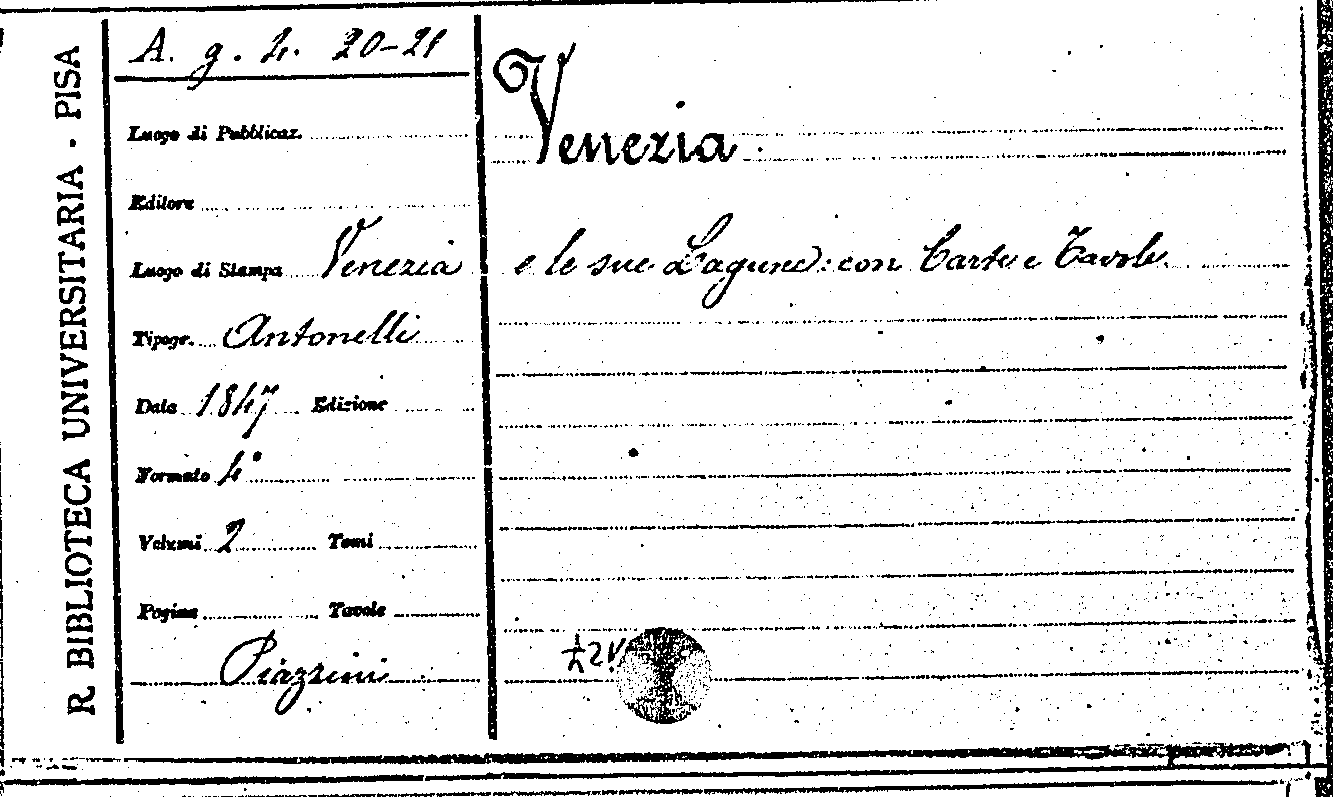 R. BIBLIOTECA UNIVERSITARIA - PISA
A. g. 4. 20-21
Luogo di Pubblicaz.
Editore
Luogo di Stampa Venezia
Tipogr. Antonelli
Data 1847 Edizione
Formato 4°
Volumi 2 Tomi
Pagine Tavole
Piazzini
Venezia
e le sue Lagune: con Carte e Tavole